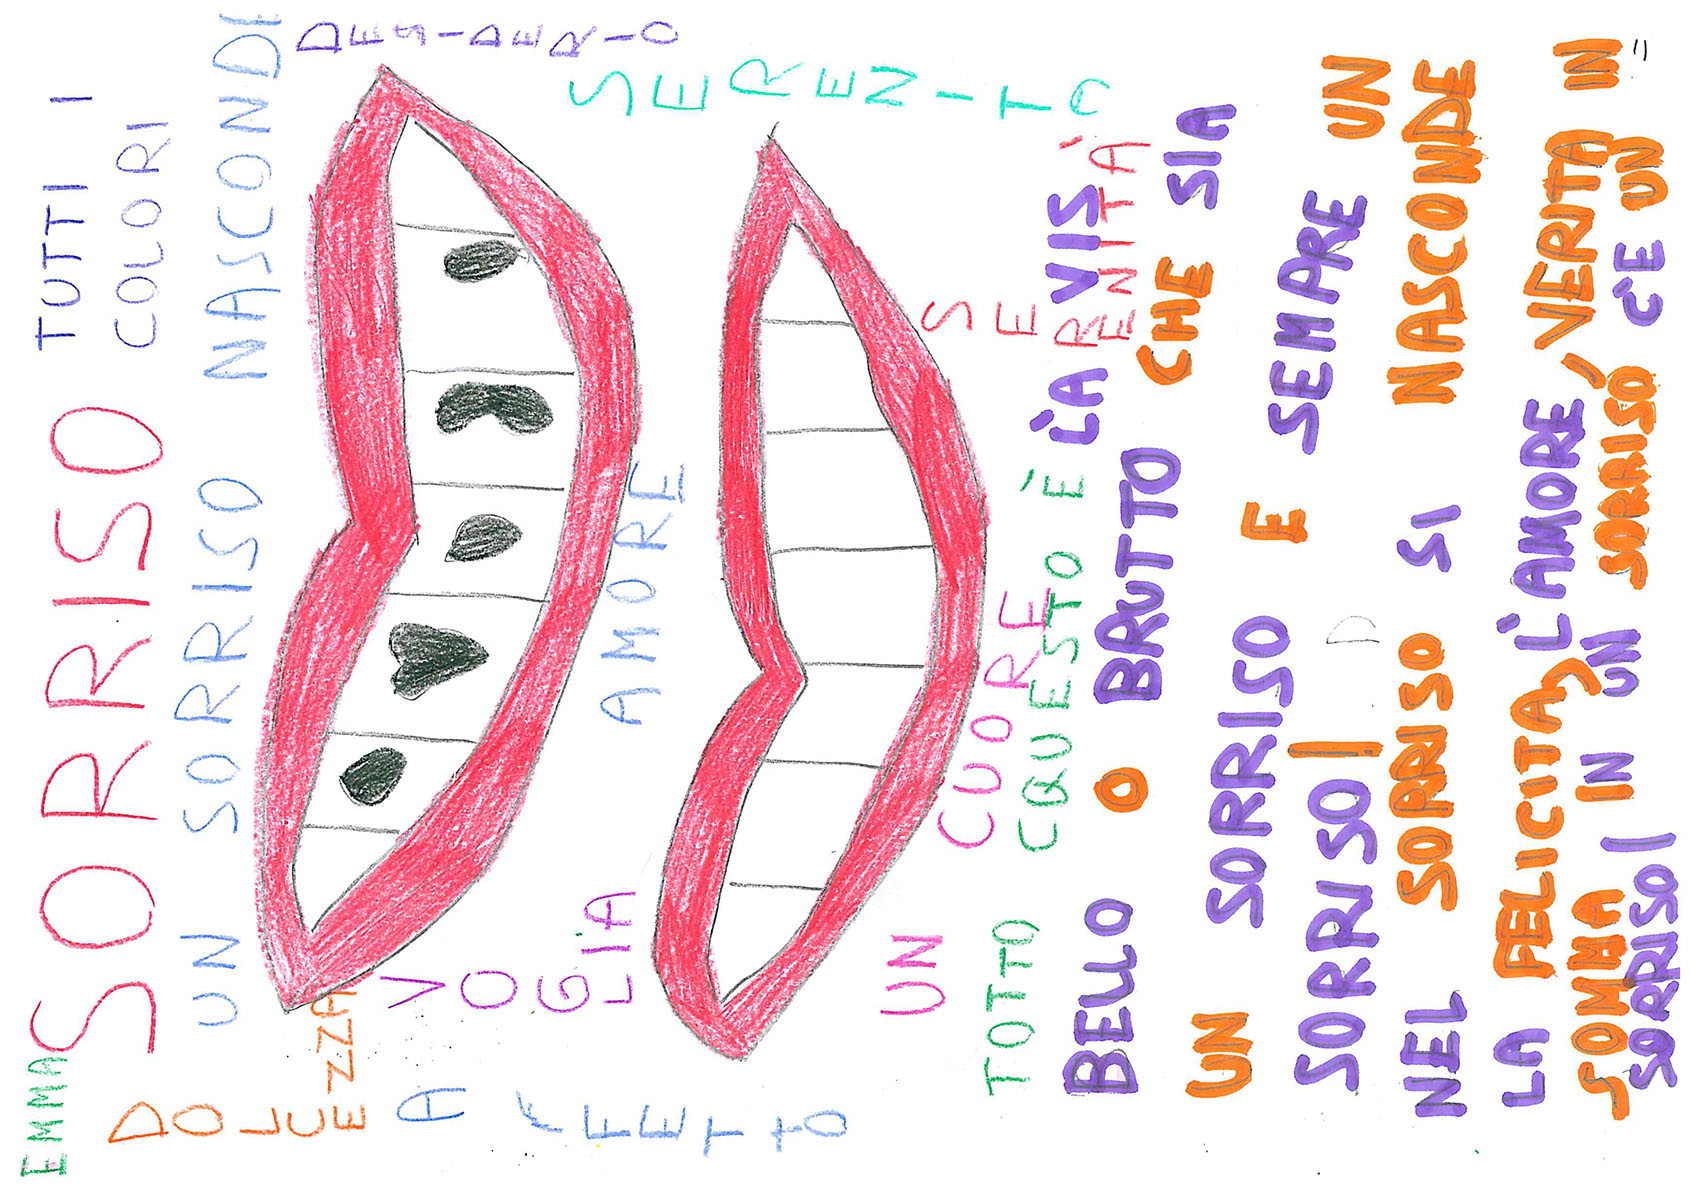 EMMA
SORRISO
TUTTI I
COLORI
UN SORRISO NASCONDE
DESIDERIO
SERENITÀ
DOLCEZZA
AFFETTO
VOGLIA
AMORE
UN CUORE
SERENITA'
TOTTO CQUESTO È L'A VIS
BELLO O BRUTTO CHE SIA
UN SORRISO E SEMPRE UN
SORRISO!
NEL SORRISO SI NASCONDE
LA FELICITA, L'AMORE, VERITA IN
SOMMA IN UN SORRISO C'E UN
SORRISO!